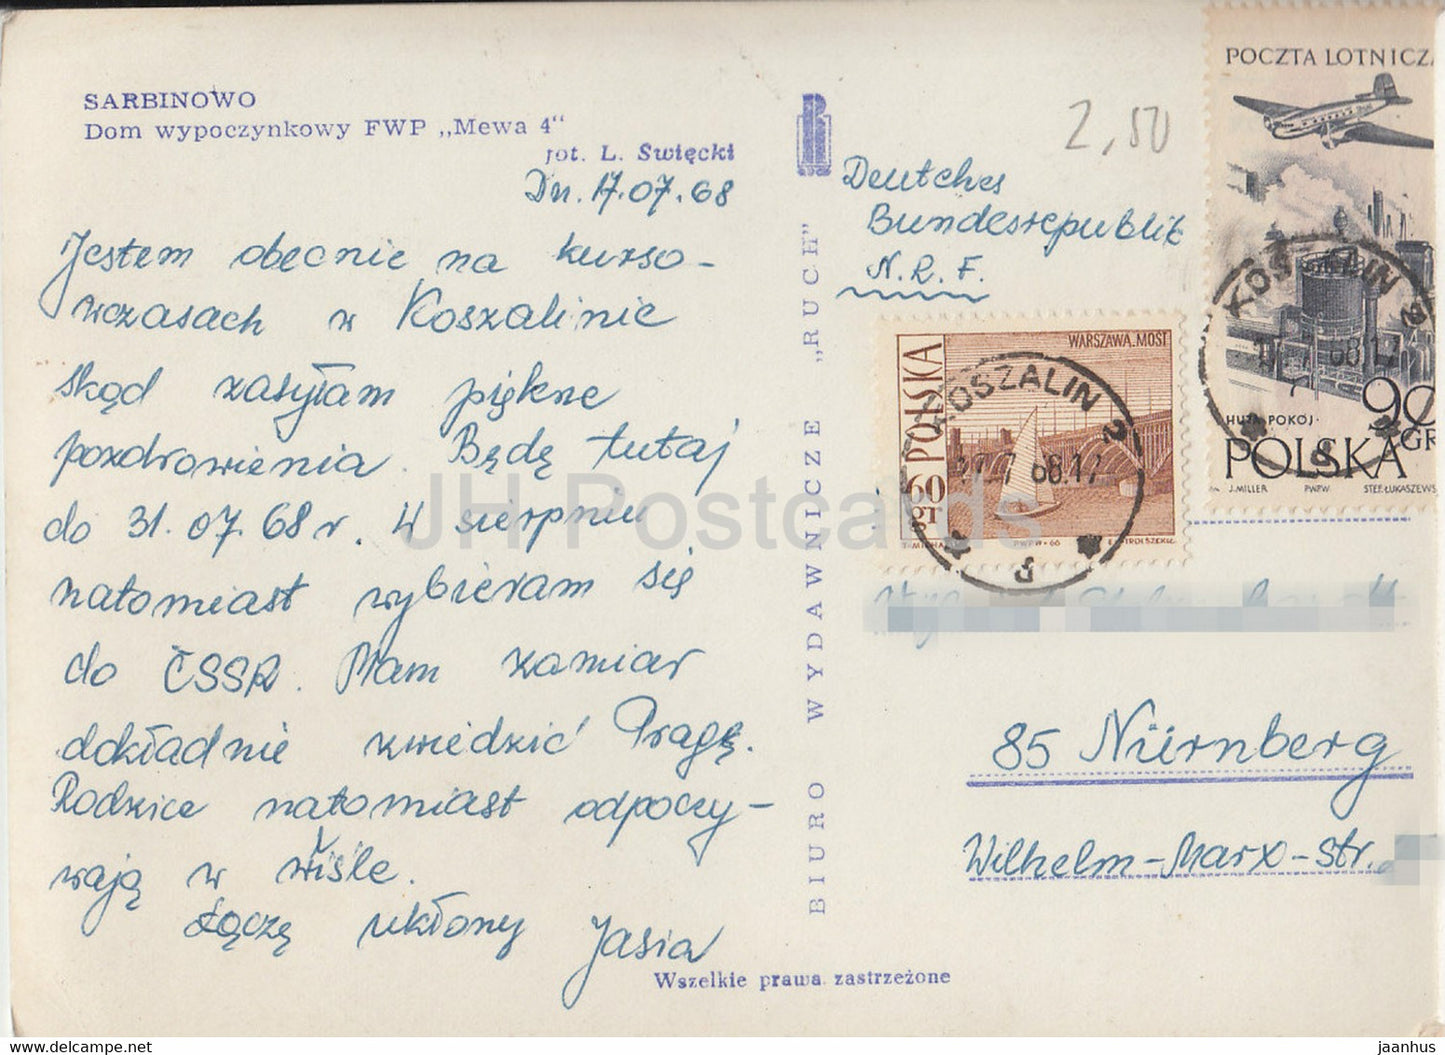 SARBINOWO
Dom wypoczynkowy FWP „Mewa 4"
fot. L. Święcki
Dn. 17.07.68
Jestem obecnie na kurso-
wczasach w Koszalinie
skąd zasyłam piękne
pozdrowienia. Będę tutaj
do 31.07.68 r. 4 sierpniu
natomiast wybieram się
do ČSSR. Mam zamiar
dokładnie zwiedzić Pragę.
Rodzice natomiast odpoczy-
wają w Wiśle.
Łączę ukłony Jasia
Wszelkie prawa zastrzeżone
BIURO WYDAWNICZE „RUCH"
2,50
Deutches
Bundesrepublik
N.R.F.
POCZTA LOTNICZA
HUTA POKÓJ
90 GR
POLSKA
J. MILLER PWPW STEF. ŁUKASZEWS
KOSZALIN 2
17.7.68.17
WARSZAWA. MOST
POLSKA
60 gr
PWPW-66
KOSZALIN 2
17.7.68.17
85 Nürnberg
Wilhelm-Marx-Str.
JH Postcards
www.jhpostcards.com
jaanhus